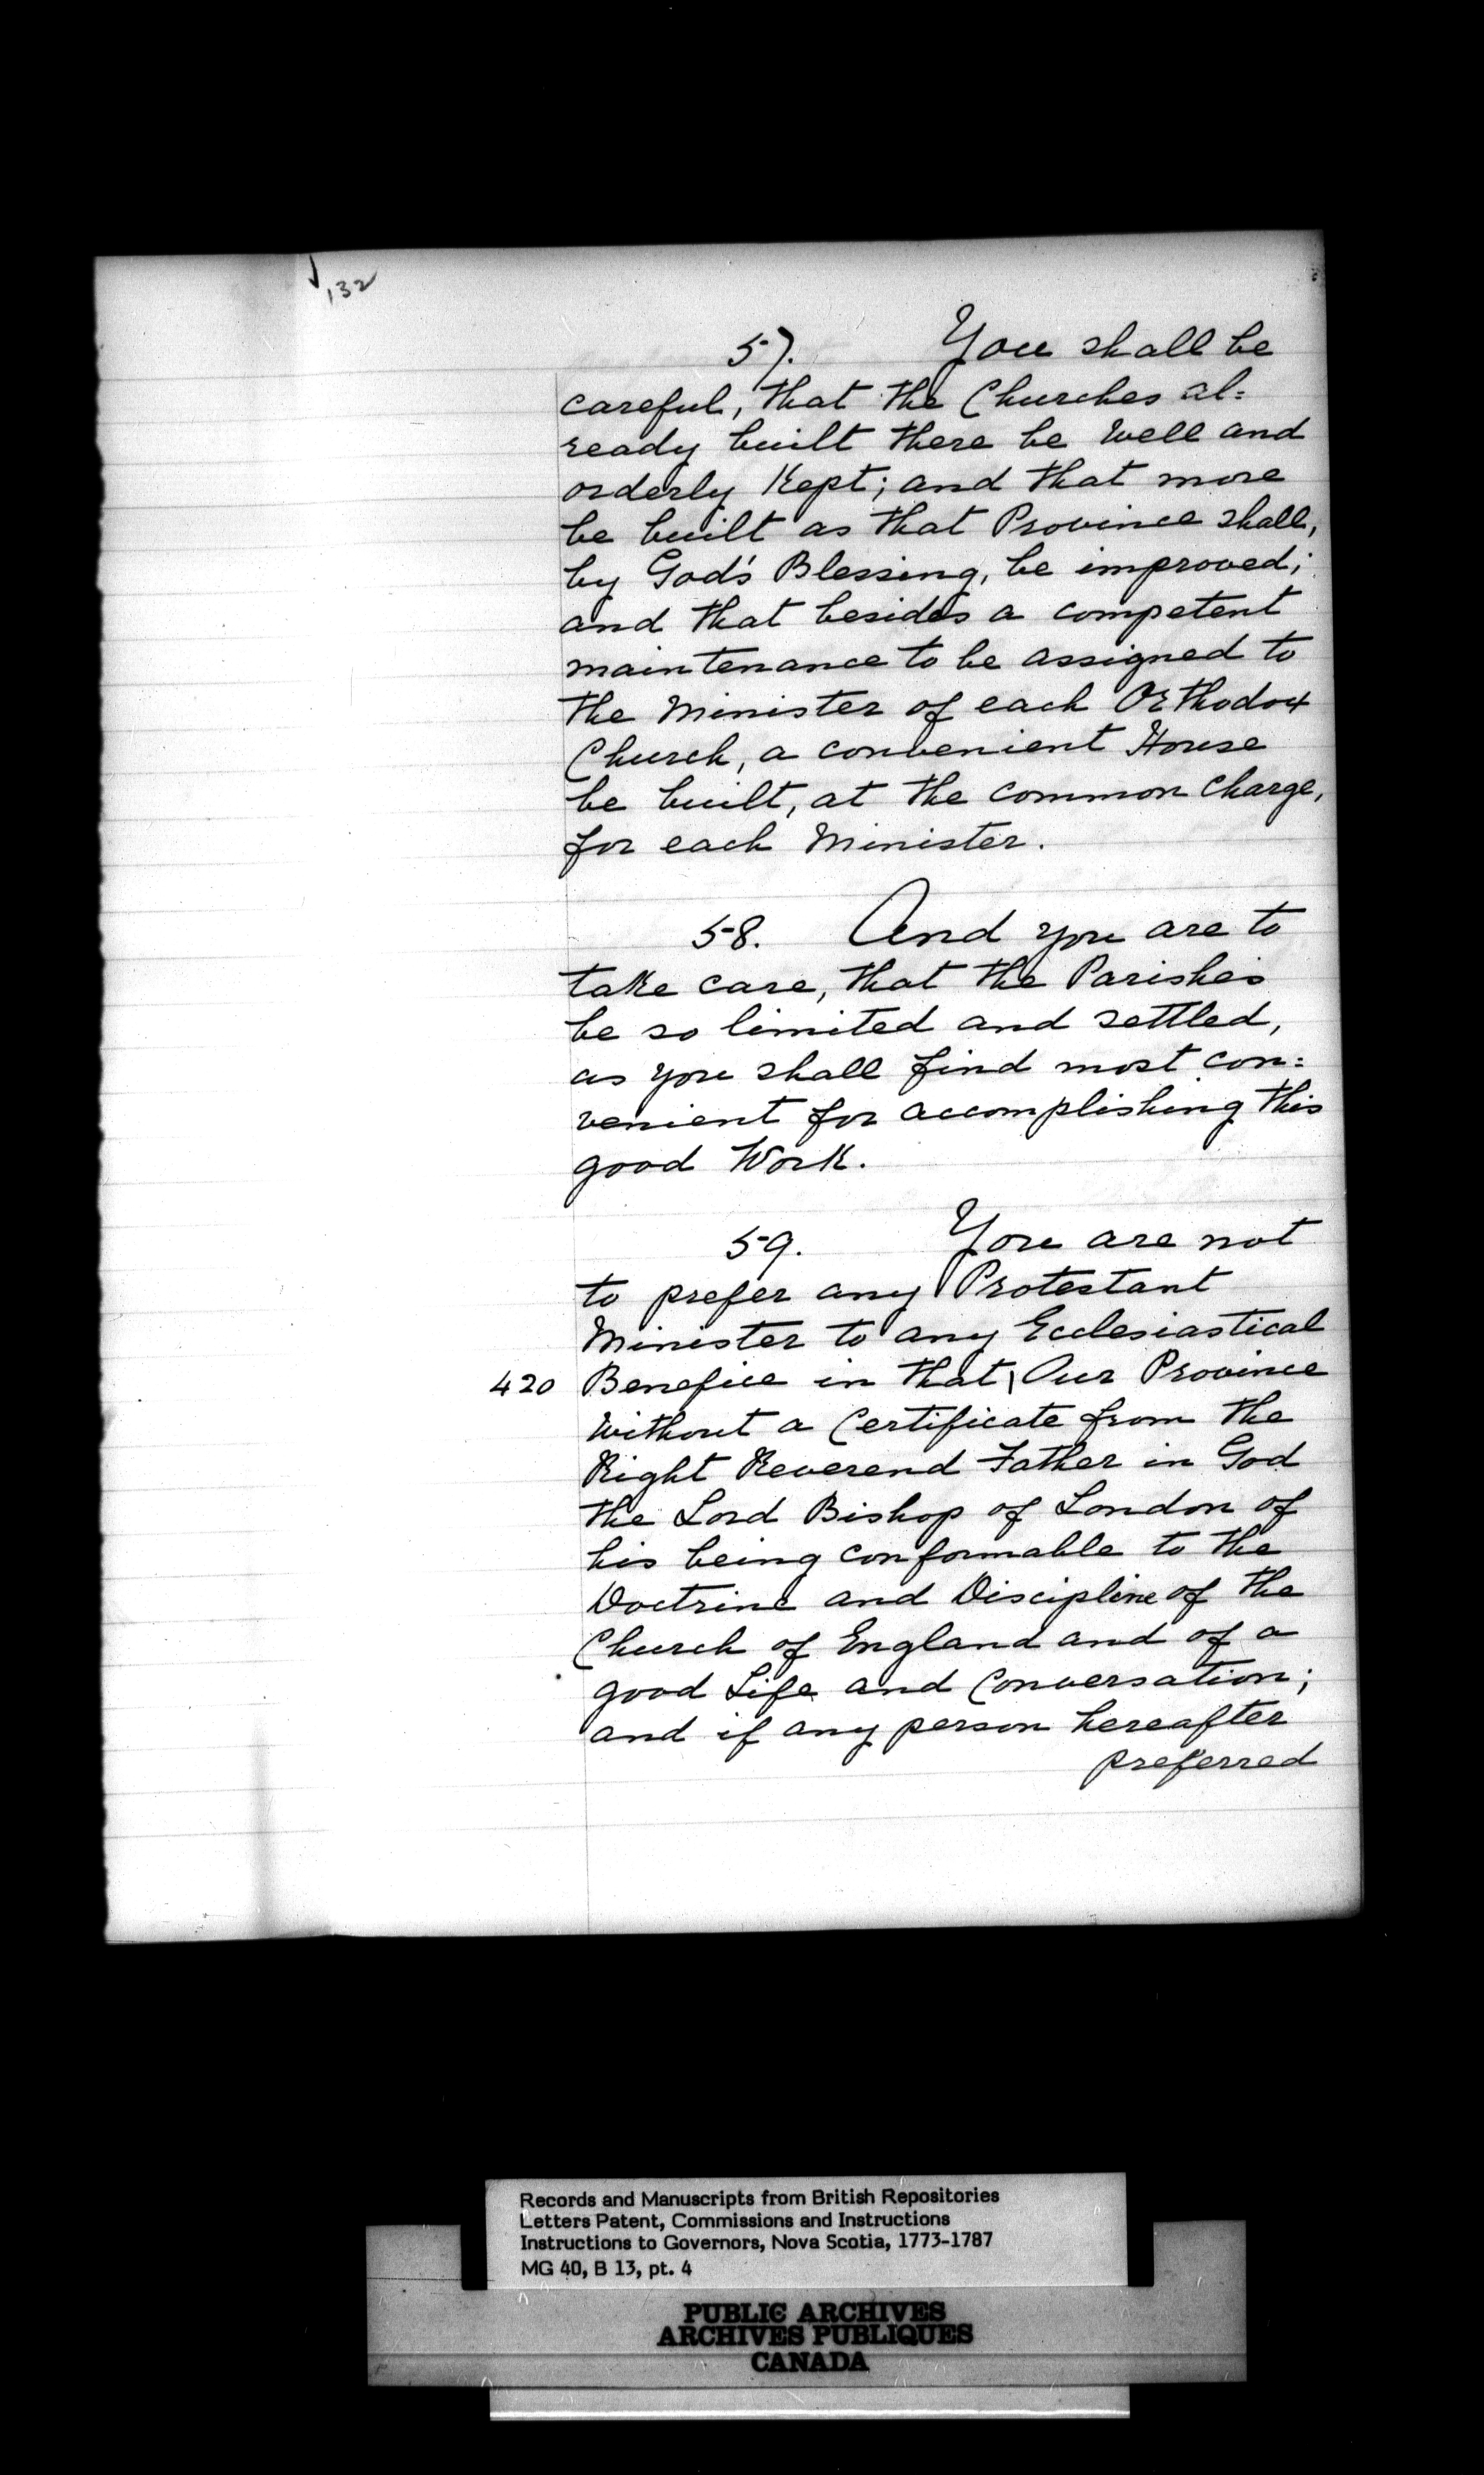 132
57. You shall be
careful, that the Churches al=
ready built there be well and
orderly Kept; and that more
be built as that Province shall,
by God's Blessing, be improved;
and that besides a competent
maintenance to be assigned to
the Minister of each Orthodox
Church, a convenient House
be built, at the common charge,
for each Minister.
58. And you are to
take care, that the Parishes
be so limited and settled,
as you shall find most con=
venient for accomplishing this
good Work.
59. You are not
to prefer any Protestant
Minister to any Ecclesiastical
420 Benefice in that \ Our Province
without a Certificate from the
Right Reverend Father in God
the Lord Bishop of London of
his being conformable to the
Doctrine and Discipline of the
Church of England and of a
good Life and Conversation;
and if any person hereafter
preferred
Records and Manuscripts from British Repositories
Letters Patent, Commissions and Instructions
Instructions to Governors, Nova Scotia, 1773-1787
MG 40, B 13, pt. 4
PUBLIC ARCHIVES
ARCHIVES PUBLIQUES
CANADA